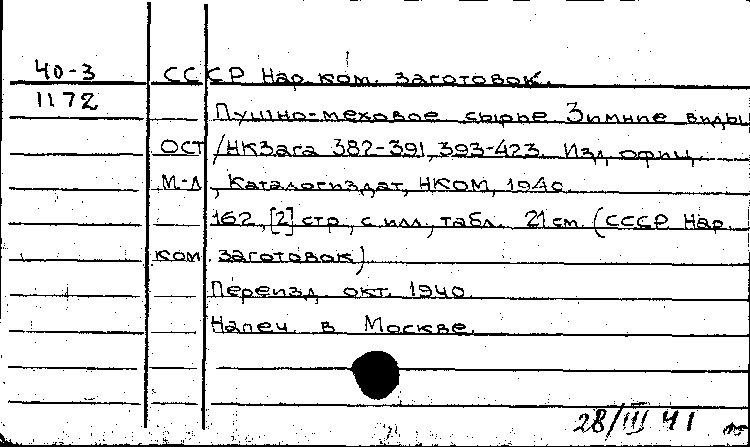 40-3 СССР Нар. ком. заготовок.
1172
Пушно-меховое сырье Зимние виды
ОСТ/НКЗага 382-391, 393-423. Изд. офиц.
М-Л, Каталогиздат, НКОМ, 1940.
162, [2] стр., с илл., табл. 21 см. (СССР Нар.
ком. заготовок)
Переизд. окт. 1940.
Напеч. в Москве.
28/III 41